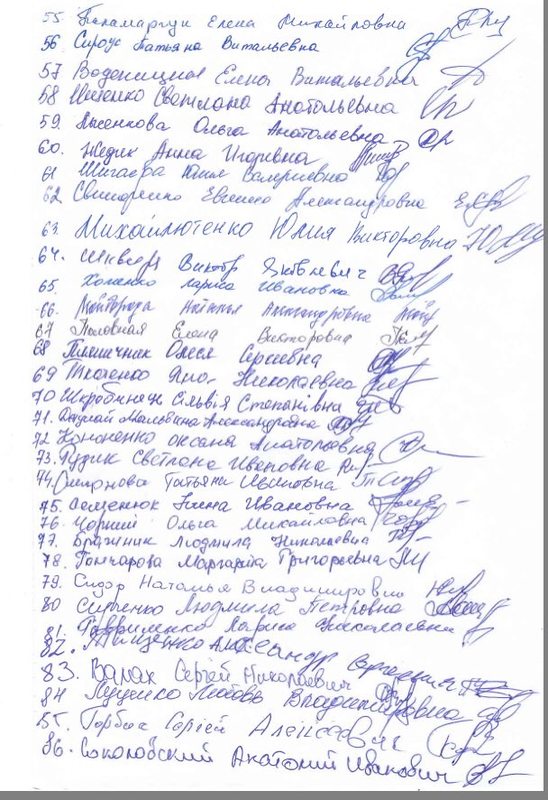 55 Паламарчук Елена Михайловна
56 Сироус Татьяна Витальевна
57 Елена Витальевна
58 Светлана Анатольевна
59. Лысенкова Ольга Анатольевна
60. Жедик Анна Игоривна
61 Шигаева Юлия Валериевна
62 Свинаренко Евгения Александровна
63 Михайлютенко Юлия Викторовна
64. Виктор Яковлевич
65 Хоменко Лариса Ивановна
66. Наталья Александровна
67 Половная Елена Викторовна
68 Пшеничник Олеся Сергиевна
69 Ткаченко Яна Николаевна
70 Сільвія Степанівна
71. Мальвина Александровна
72 Кононенко Оксана Анатольевна
73. Рудик Светлана Ивановна
74. Смирнова Татьяна Ивановна
75. Семенюк Нина Ивановна
76. Чорний Ольга Михайловна
77. Брагиник Людмила Николаевна
78. Гончарова Маргарита Григорьевна
79. Сидор Наталья Владимировна
80 Людмила Петровна
81. Гавриленко Лариса Николаевна
82. Тищенко Александр Сергеевич
83. Валах Сергей Николаевич
84 Луценко Любовь Владимировна
85. Горбач Сергей Алексеевич
86. Соколовский Анатолий Иванович